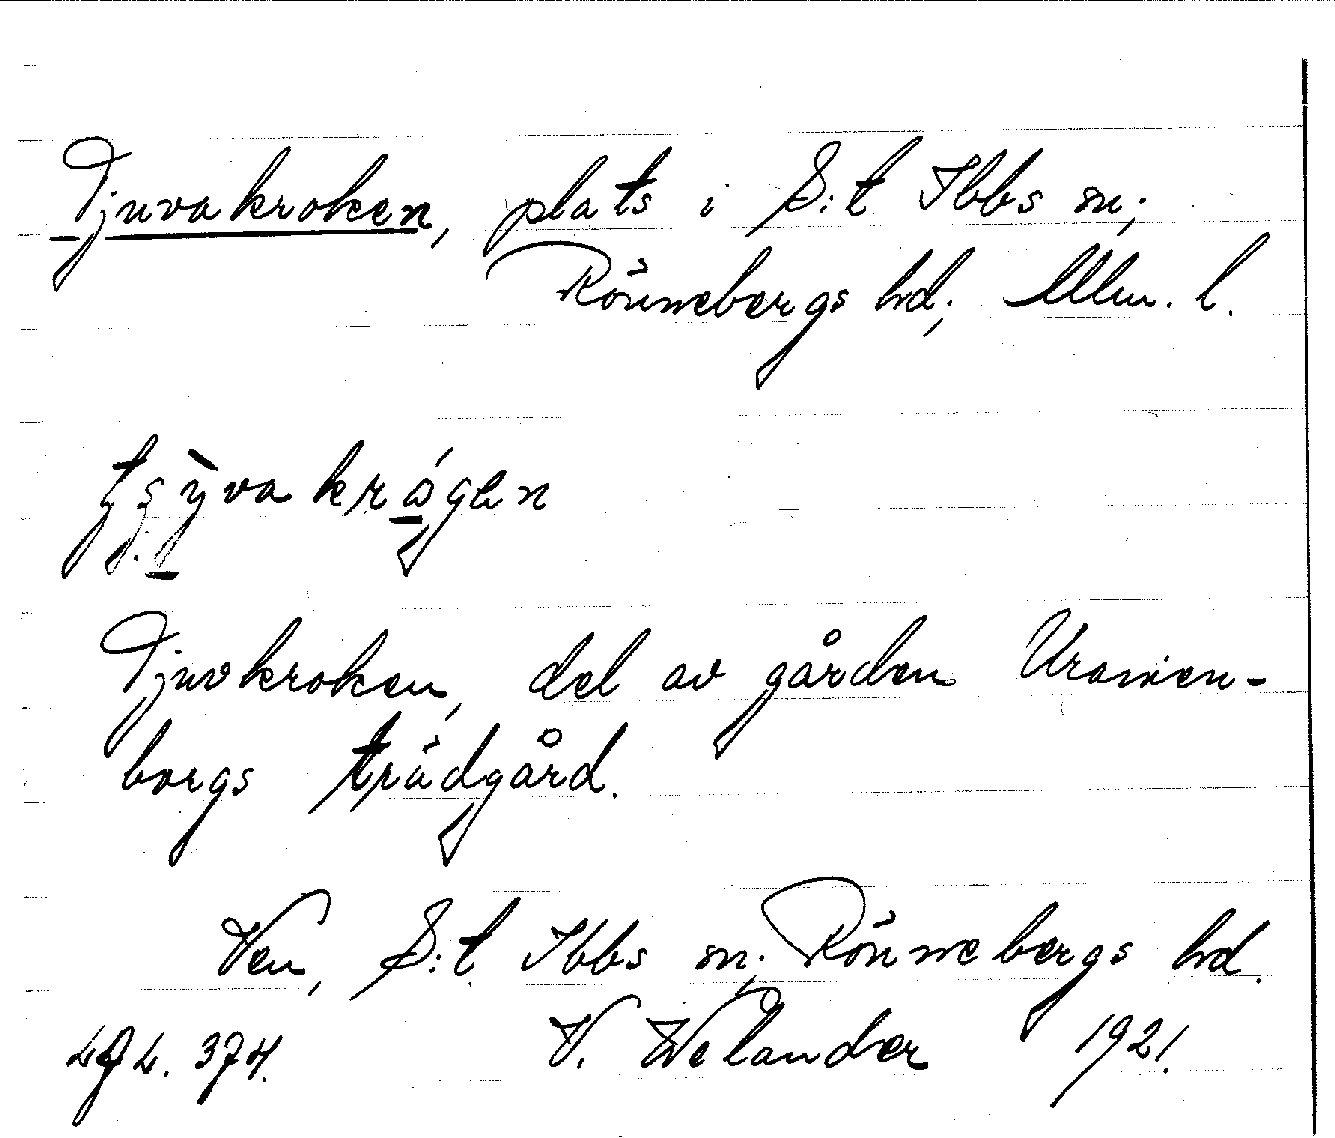 Tjuvakroken, plats i S:t Ibbs sn;
Rönnebergs hd; Mlm. l.
tşỳva krǻgen
Tjuvkroken, del av gården Uranien-
borgs trädgård.
Ven, S:t Ibbs sn; Rönnebergs hd.
494. 374. V. Welander 1921.